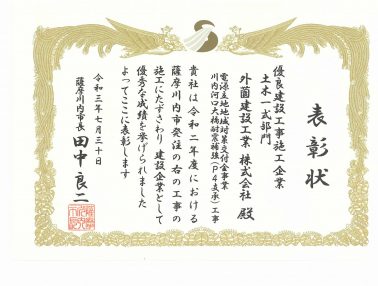 表彰状
優良建設工事施工企業
土木一式部門
外薗建設工業 株式会社 殿
電源立地地域対策交付金事業
川内河口大橋耐震補強(P4支承)工事
貴社は令和二年度における
薩摩川内市発注の右の工事の
施工にたずさわり建設企業として
優秀な成績を挙げられました
よってここに表彰します
令和三年七月三十日
薩摩川内市長 田中良二